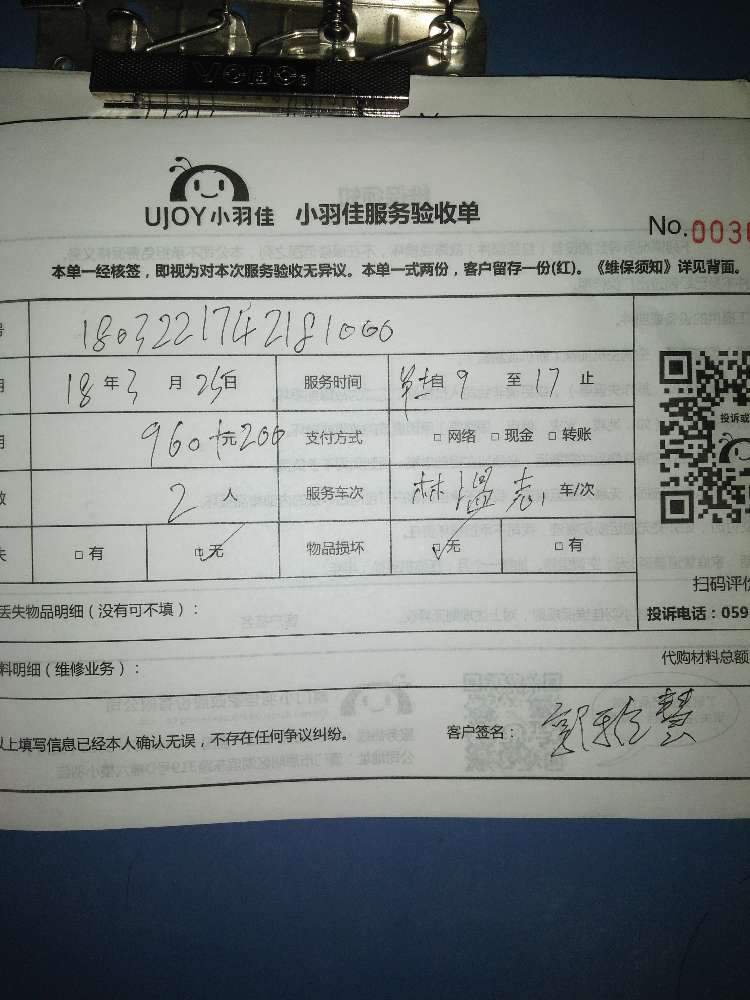 VOBO
UJOY小羽佳 小羽佳服务验收单
No.003
本单一经核签，即视为对本次服务验收无异议。本单一式两份，客户留存一份(红)。《维保须知》详见背面。
1803221742181000
18年3月25日 服务时间 自9至17止
960+元200 支付方式 □网络 □现金 □转账
投诉或
2人 服务车次 林温志 车/次
□有 □无 物品损坏 □无 □有
扫码评价
丢失物品明细（没有可不填）： 投诉电话：059
料明细（维修业务）： 代购材料总额
以上填写信息已经本人确认无误，不存在任何争议纠纷。 客户签名：